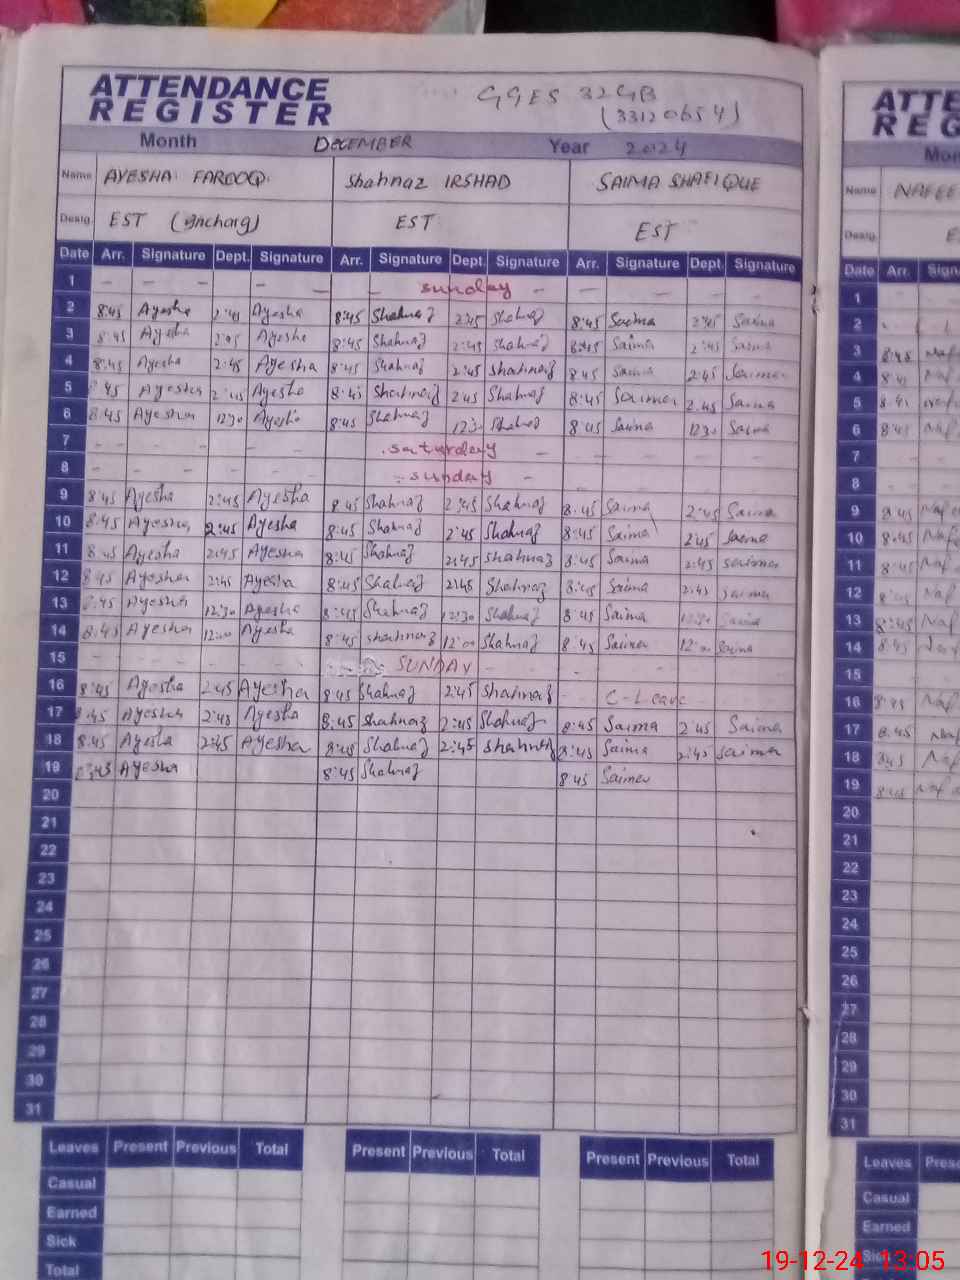 ATTENDANCE REGISTER
GGES 32GB
(33120654)
Month DECEMBER Year 2024
Name AYESHA FAROOQ Shahnaz IRSHAD SAIMA SHAFIQUE
Desig. EST (Incharg) EST EST
Date Arr. Signature Dept. Signature Arr. Signature Dept. Signature Arr. Signature Dept Signature
1 sunday
2 8:45 Ayesha 2:45 Ayesha 8:45 Shahnaz 2:45 Shahnaz 8:45 Saima 2:45 Saima
3 8:45 Ayesha 2:45 Ayesha 8:45 Shahnaz 2:45 Shahnaz 8:45 Saima 2:45 Saima
4 8:45 Ayesha 2:45 Ayesha 8:45 Shahnaz 2:45 Shahnaz 8:45 Saima 2:45 Saima
5 8:45 Ayesha 2:45 Ayesha 8:45 Shahnaz 2:45 Shahnaz 8:45 Saima 2:45 Saima
6 8:45 Ayesha 12:30 Ayesha 8:45 Shahnaz 12:30 Shahnaz 8:45 Saima 12:30 Saima
7 saturday
8 sunday
9 8:45 Ayesha 2:45 Ayesha 8:45 Shahnaz 2:45 Shahnaz 8:45 Saima 2:45 Saima
10 8:45 Ayesha 2:45 Ayesha 8:45 Shahnaz 2:45 Shahnaz 8:45 Saima 2:45 Saima
11 8:45 Ayesha 2:45 Ayesha 8:45 Shahnaz 2:45 Shahnaz 8:45 Saima 2:45 Saima
12 8:45 Ayesha 2:45 Ayesha 8:45 Shahnaz 2:45 Shahnaz 8:45 Saima 2:45 Saima
13 8:45 Ayesha 12:30 Ayesha 8:45 Shahnaz 12:30 Shahnaz 8:45 Saima 12:30 Saima
14 8:45 Ayesha 12:00 Ayesha 8:45 Shahnaz 12:00 Shahnaz 8:45 Saima 12:00 Saima
15 SUNDAY
16 8:45 Ayesha 2:45 Ayesha 8:45 Shahnaz 2:45 Shahnaz C-Leave
17 8:45 Ayesha 2:45 Ayesha 8:45 Shahnaz 2:45 Shahnaz 8:45 Saima 2:45 Saima
18 8:45 Ayesha 2:45 Ayesha 8:45 Shahnaz 2:45 Shahnaz 8:45 Saima 2:45 Saima
19 8:45 Ayesha 8:45 Shahnaz 8:45 Saima
20
21
22
23
24
25
26
27
28
29
30
31
Leaves Present Previous Total Present Previous Total Present Previous Total
Casual
Earned
Sick
Total
Name
Desig.
Date Arr.
1
2
3 8:45
4 8:45
5 8:45
6 8:45
7
8
9 8:45
10 8:45
11 8:45
12
13 8:45
14 8:45
15
16 8:45
17 8:45
18 8:45
19 8:45
20
21
22
23
24
25
26
27
28
29
30
31
Leaves
Casual
Earned
Sick
19-12-24 13:05